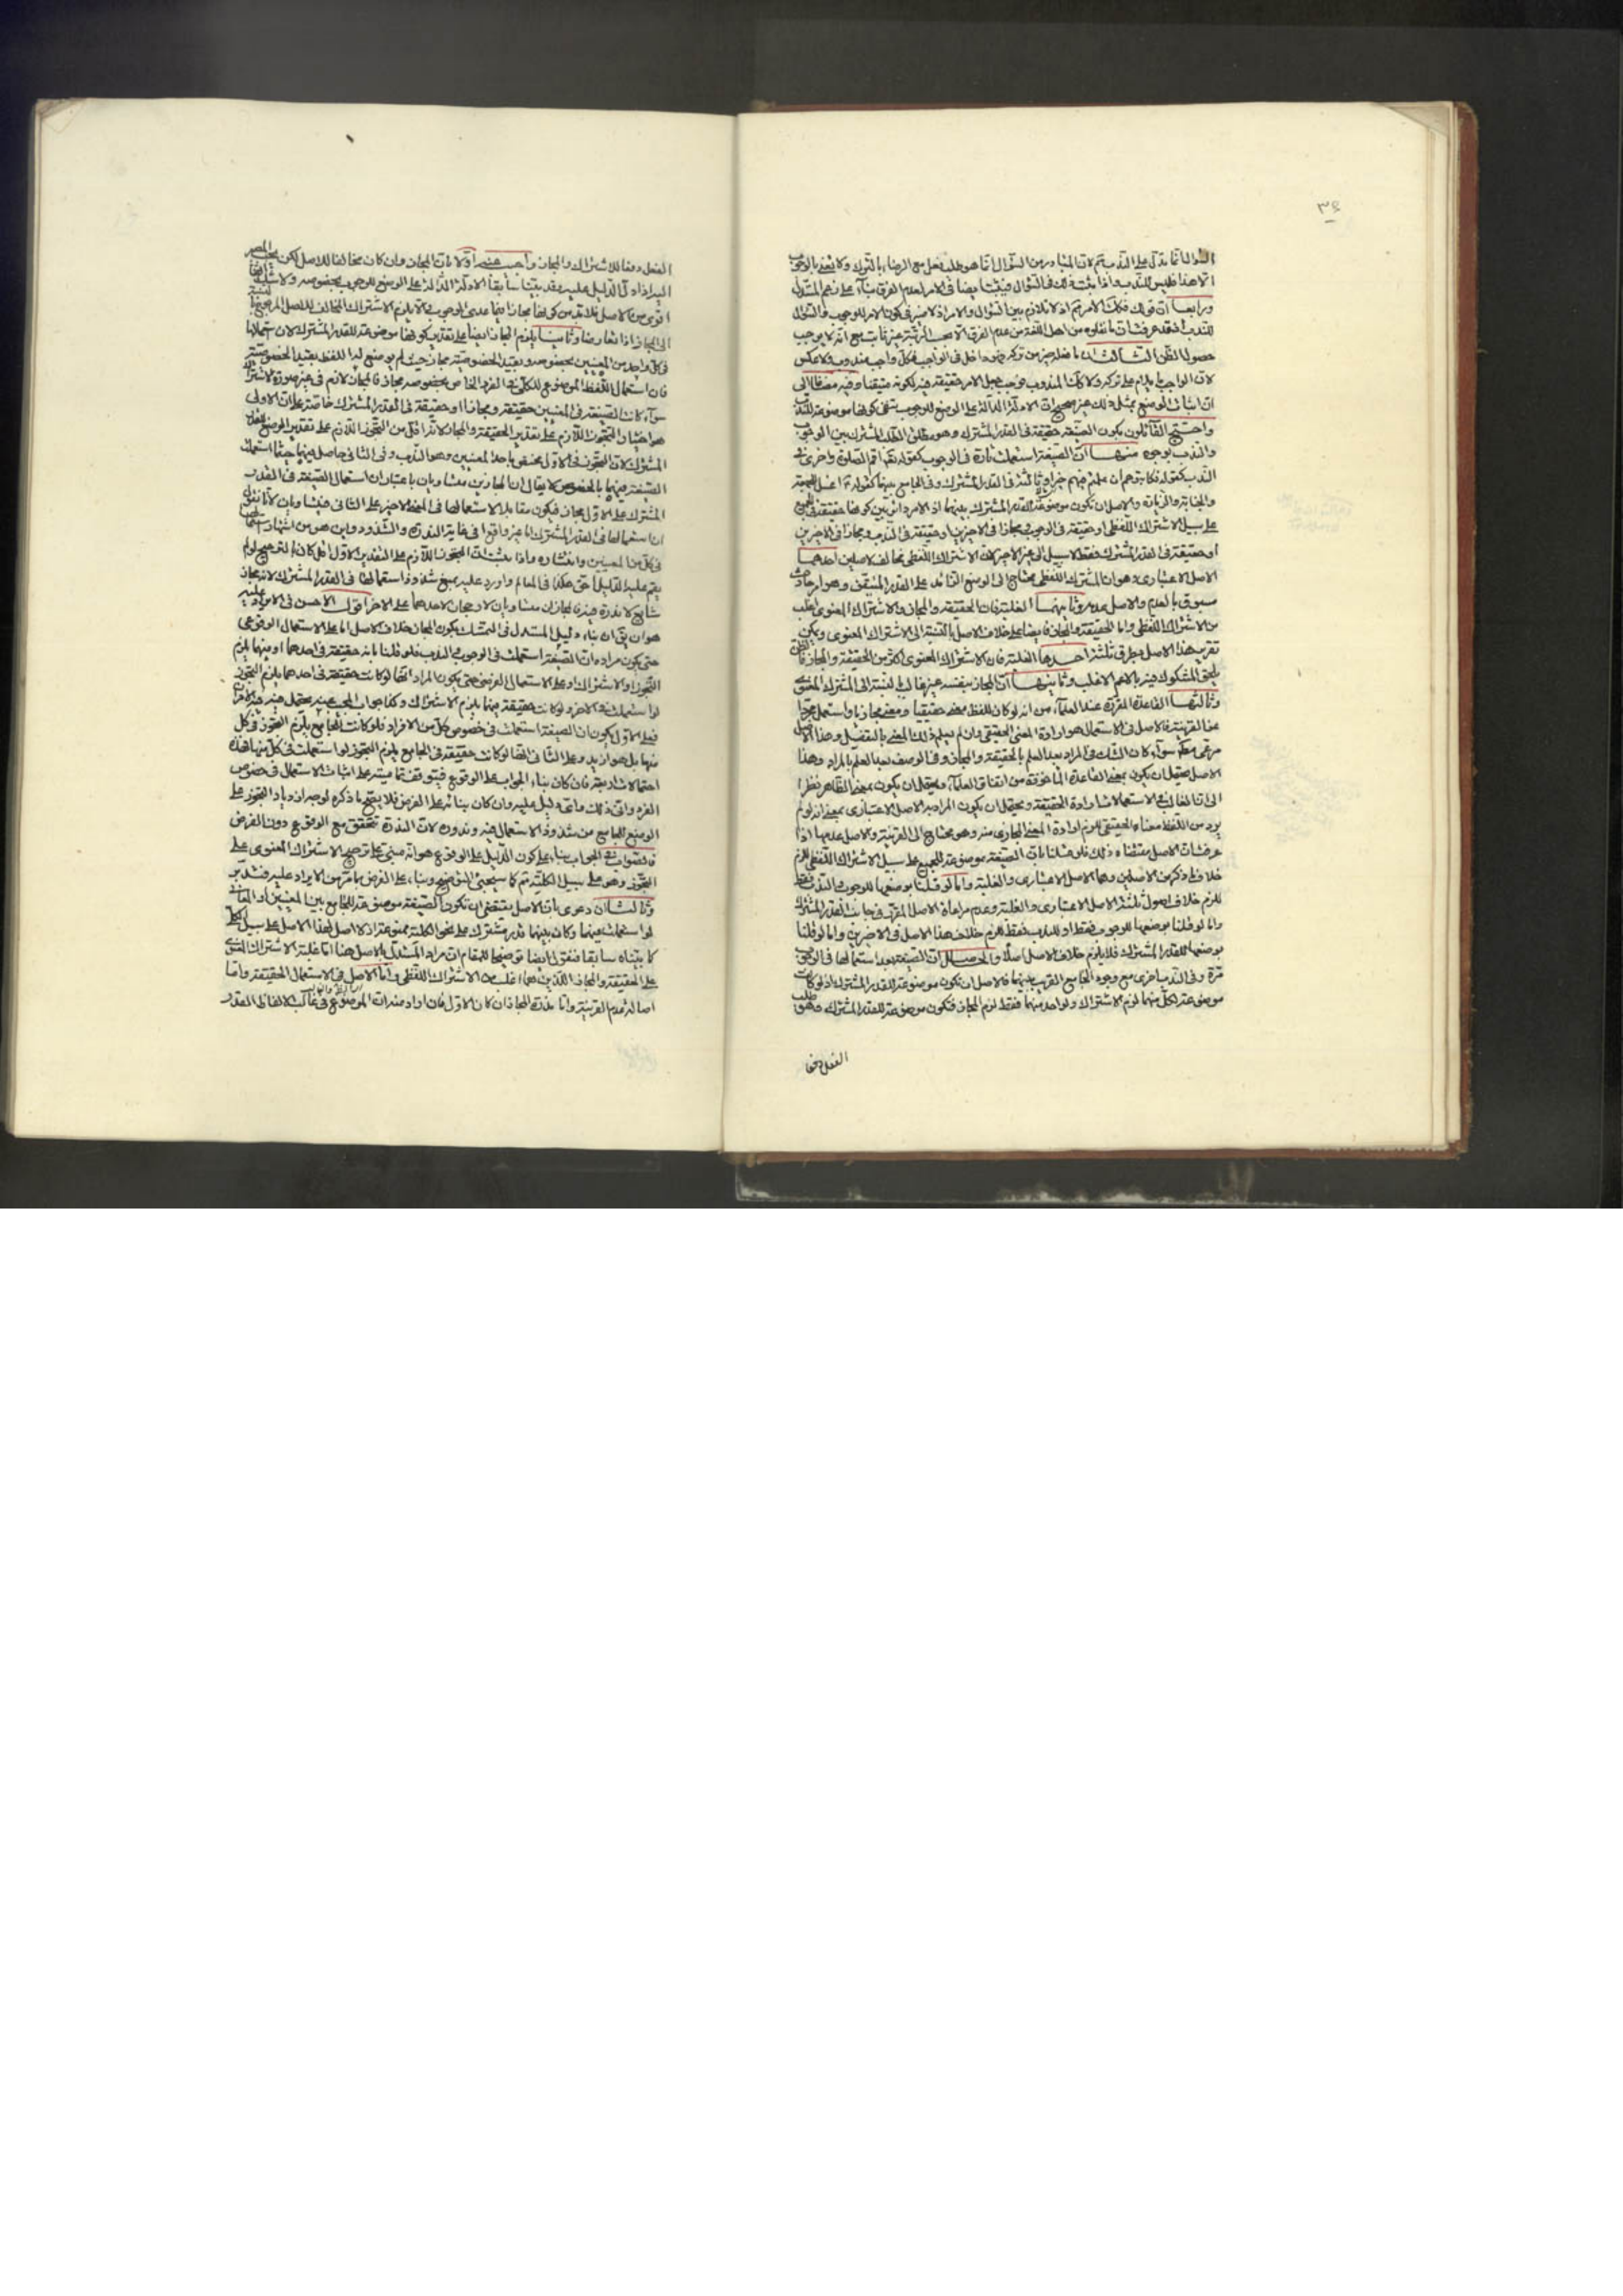 ٣٤
السؤال انما يدل على الندب ثم لان المتبادر من السؤال انما هو طلب الفعل مع الرضاء بالترك ولا نعنى بالوجوب
الا هذا فليس للندب واذا ثبت ذلك فى السؤال فيثبت ايضا فى الامر لعدم الفرق بناء على زعم المستدل
ورابعا ان قولك فكذلك الامر ثم اذ لا تلازم بين السؤال والامر اذ لا ضير فى كون الامر للوجوب والسؤال
للندب فقد عرفت ان ما نقلوه من اهل اللغة من عدم الفرق الا بحسب الرتبة غير ثابت مع انه لا يوجب
حصول الظن الثالث ان
لان الواجب ما يذم على تركه ولا كذلك المندوب فيجب جعل الامر حقيقة فيه لكونه متيقنا وفيه مضافا الى
ان اثبات الوضع بمثل ذلك غير صحيح ان الادلة الدالة على الوضع للوجوب تنفى كونها موضوعة للندب
واحتج القائلون بكون الصيغة حقيقة فى القدر المشترك وهو مطلق الطلب المشترك بين الوجوب
والندب بوجوه منها ان الصيغة استعملت تارة فى الوجوب كقوله تعالى اقم الصلوة واخرى فى
الندب كقوله تعالى فكاتبوهم ان علمتم فيهم خيرا وثالثة فى القدر المشترك وفى الجامع بينهما كقوله اغسل للجمعة
والجنابة والزيارة والاصل ان تكون موضوعة للقدر المشترك بينهما اذ الامر دائر بين كونها حقيقة فى الجميع
على سبيل الاشتراك اللفظى او حقيقة فى الوجوب ومجازا فى الاخيرين او حقيقة فى الندب ومجازا فى الاخيرين
او حقيقة فى القدر المشترك فقط لا سبيل الى غير الاخير لان الاشتراك اللفظى مخالف لاصلين احدهما
الاصل الاعتبارى وهو ان المشترك اللفظى يحتاج الى الوضع الزائد على القدر المتيقن وهو امر حادث
مسبوق بالعدم والاصل عدمه وثانيهما الغلبة فان الحقيقة والمجاز والاشتراك المعنوى اغلب
من الاشتراك اللفظى واما الحقيقة والمجاز فايضا على خلاف الاصل بالنسبة الى الاشتراك المعنوى ويمكن
تقرير هذا الاصل بطرق ثلثة احدها الغلبة فان الاشتراك المعنوى اكثر من الحقيقة والمجاز فالظن
يلحق المشكوك فيه بالاعم الاغلب وثانيها ان المجاز بنفسه غير غالب بالنسبة الى المشترك المعنوى
وثالثها القاعدة المقررة عند العلماء من انه لو كان للفظ معنى حقيقيا ومعنى مجازيا واستعمل مجردا
عن القرينة فالاصل فى الاستعمال هو ارادة المعنى الحقيقى وان لم يعلم ذلك المعنى بالتفصيل وهذا الاصل
مرعى سواء كان الشك فى المراد بعد العلم بالحقيقة والمجاز وفى الوصف بعد العلم بالمراد وهذا
الاصل يحتمل ان يكون بمعنى القاعدة الماخوذة من اتفاق العلماء ويحتمل ان يكون بمعنى الظاهر نظرا
الى ان الغالب فى الاستعمالات ارادة الحقيقة ويحتمل ان يكون المراد به الاصل الاعتبارى بمعنى انه لو لم
يرد من اللفظ معناه الحقيقى للزم ارادة المعنى المجازى منه وهو محتاج الى القرينة والاصل عدمها اذا
عرفت ان الاصل يقتضى ذلك فلو قلنا بان الصيغة موضوعة للجميع على سبيل الاشتراك اللفظى للزم
خلاف ما ذكر من الاصلين وهما الاصل الاعتبارى والغلبة واما لو قلنا بوضعها للوجوب او الندب فقط
للزم خلاف اصول ثلثة الاصل الاعتبارى والغلبة وعدم مراعاة الاصل المقرر فى جانب القدر المشترك
واما لو قلنا بوضعها للوجوب فقط او للندب فقط للزم خلاف هذا الاصل فى الاخيرين واما لو قلنا
بوضعها للقدر المشترك فلا يلزم خلاف الاصل اصلا والحاصل ان الصيغة بعد استعمالها فى الوجوب
مرة وفى الندب اخرى مع وجود الجامع القريب بينهما فالاصل ان تكون موضوعة للقدر المشترك اذ لو كانت
موضوعة لكل منهما لزم الاشتراك ولواحد منهما فقط لزم المجاز فتكون موضوعة للقدر المشترك وهو طلب
الفعل دفعا
الفعل دفعا للاشتراك والمجاز واجيب عنه اولا بان المجاز وان كان مخالفا للاصل لكن يجب المصير
اليه اذا دل الدليل عليه وقد بينا سابقا الادلة الدالة على الوضع للوجوب بخصوصه ولا شك انها
اقوى من الاصل فلا بد من كونها مجازا فيما عدى الوجوب لئلا يلزم الاشتراك المخالف للاصل المرجوح بالنسبة
الى المجاز اذا تعارضا وثانيا يلزم المجاز ايضا على تقدير كونها موضوعة للقدر المشترك لان استعمالها
فى كل واحد من المعنيين بخصوصه وبقيد الخصوصية مجاز حيث لم يوضع له اللفظ بقيد الخصوصية
فان استعمال اللفظ الموضوع للكلى فى الفرد الخاص بخصوصه مجاز فالمجاز لازم فى غير صورة الاشتراك
سواء كانت الصيغة فى المعنيين حقيقة ومجازا او حقيقة فى القدر المشترك خاصة على ان الاولى
هو اختيار التجوز اللازم على تقدير الحقيقة والمجاز لانه اقل من التجوز اللازم على تقدير الوضع للقدر
المشترك لان التجوز فى الاول مختص باحد المعنيين وهو الندب وفى الثانى حاصل فيهما حيثما استعملت
الصيغة فيهما بالخصوص لا يقال ان المجازين متساويان باعتبار ان استعمال الصيغة فى القدر
المشترك على الاول مجاز فيكون مقابلا لاستعمالها فى المعنى الاخير على الثانى فيتساويان لانا نقول
ان استعمالها فى القدر المشترك اما غير واقع او فى غاية الندرة والشذوذ واين هو من اشتهار استعمالها
فى كل من المعنيين وانتشاره واذا ثبت ان التجوز اللازم على التقدير الاول اقل كان بالترجيح لو لم
يقم عليه الدليل احق هكذا فى المعالم واورد عليه بمنع شذوذ استعمالها فى القدر المشترك لانه مجاز
شايع لا ندرة فيه فالمجازان متساويان لا رجحان لاحدهما على الاخر اقول الاحسن فى الايراد عليه
هو ان يق ان بناء دليل المستدل فى التمسك بكون المجاز خلاف الاصل اما على الاستعمال الوقوعى
حتى يكون مراده ان الصيغة استعملت فى الوجوب والندب فلو قلنا بانه حقيقة فى احدهما او فيهما يلزم
التجوز او الاشتراك او على الاستعمال الفرضى حتى يكون المراد انها لو كانت حقيقة فى احدهما يلزم التجوز
لو استعملت فى الاخر ولو كانت حقيقة فيهما يلزم الاشتراك وكذا جواب المجيب عنه يحتمل فيه هذين الامرين
فعلى الاول يكون ان الصيغة استعملت فى خصوص كل من الافراد فلو كانت للجامع يلزم التجوز فى كل
منها بل هو ازيد وعلى الثانى انها لو كانت حقيقة فى الجامع يلزم التجوز لو استعملت فى كل منهما فهذه
احتمالات اربعة فان كان بناء الجواب على الوقوع فيتوقف تماميته على اثبات الاستعمال فى خصوص
الفرد وانى ذلك واى دليل عليه وان كان بنائه على الفرض فلا يصح ما ذكره لوجه ازدياد التجوز على
الوضع للجامع من شذوذ الاستعمال فيه وندوره لان الندرة تتحقق مع الوقوع دون الفرض
فالصواب فى الجواب بناء على كون الدليل على الوقوع هو انه مبنى على ترجيح الاشتراك المعنوى على
التجوز وهو على سبيل الكلية ثم كما سيجيئ التوضيح وبناء على الفرض ما مر من الايراد عليه فتدبر
وثالثا ان دعوى بان الاصل يقتضى ان تكون الصيغة موضوعة للجامع بين المعنيين او المعانى
لو استعملت فيهما وكان بينهما قدر مشترك على نحو الكلية ممنوعة اذ لا اصل لهذا الاصل على سبيل الكلى
كما بيناه سابقا فنقول ايضا توضيحا للمقام ان مراد المستدل بالاصل هنا اما غلبة الاشتراك المعنوى
على الحقيقة والمجاز اللذين هما اغلب من الاشتراك اللفظى واما الاصل فى الاستعمال الحقيقة واما
اصالة عدم القرينة واما ندرة المجاز ان كان الاول فان اراد منه ان الموضوع فى غالب الالفاظ القدر